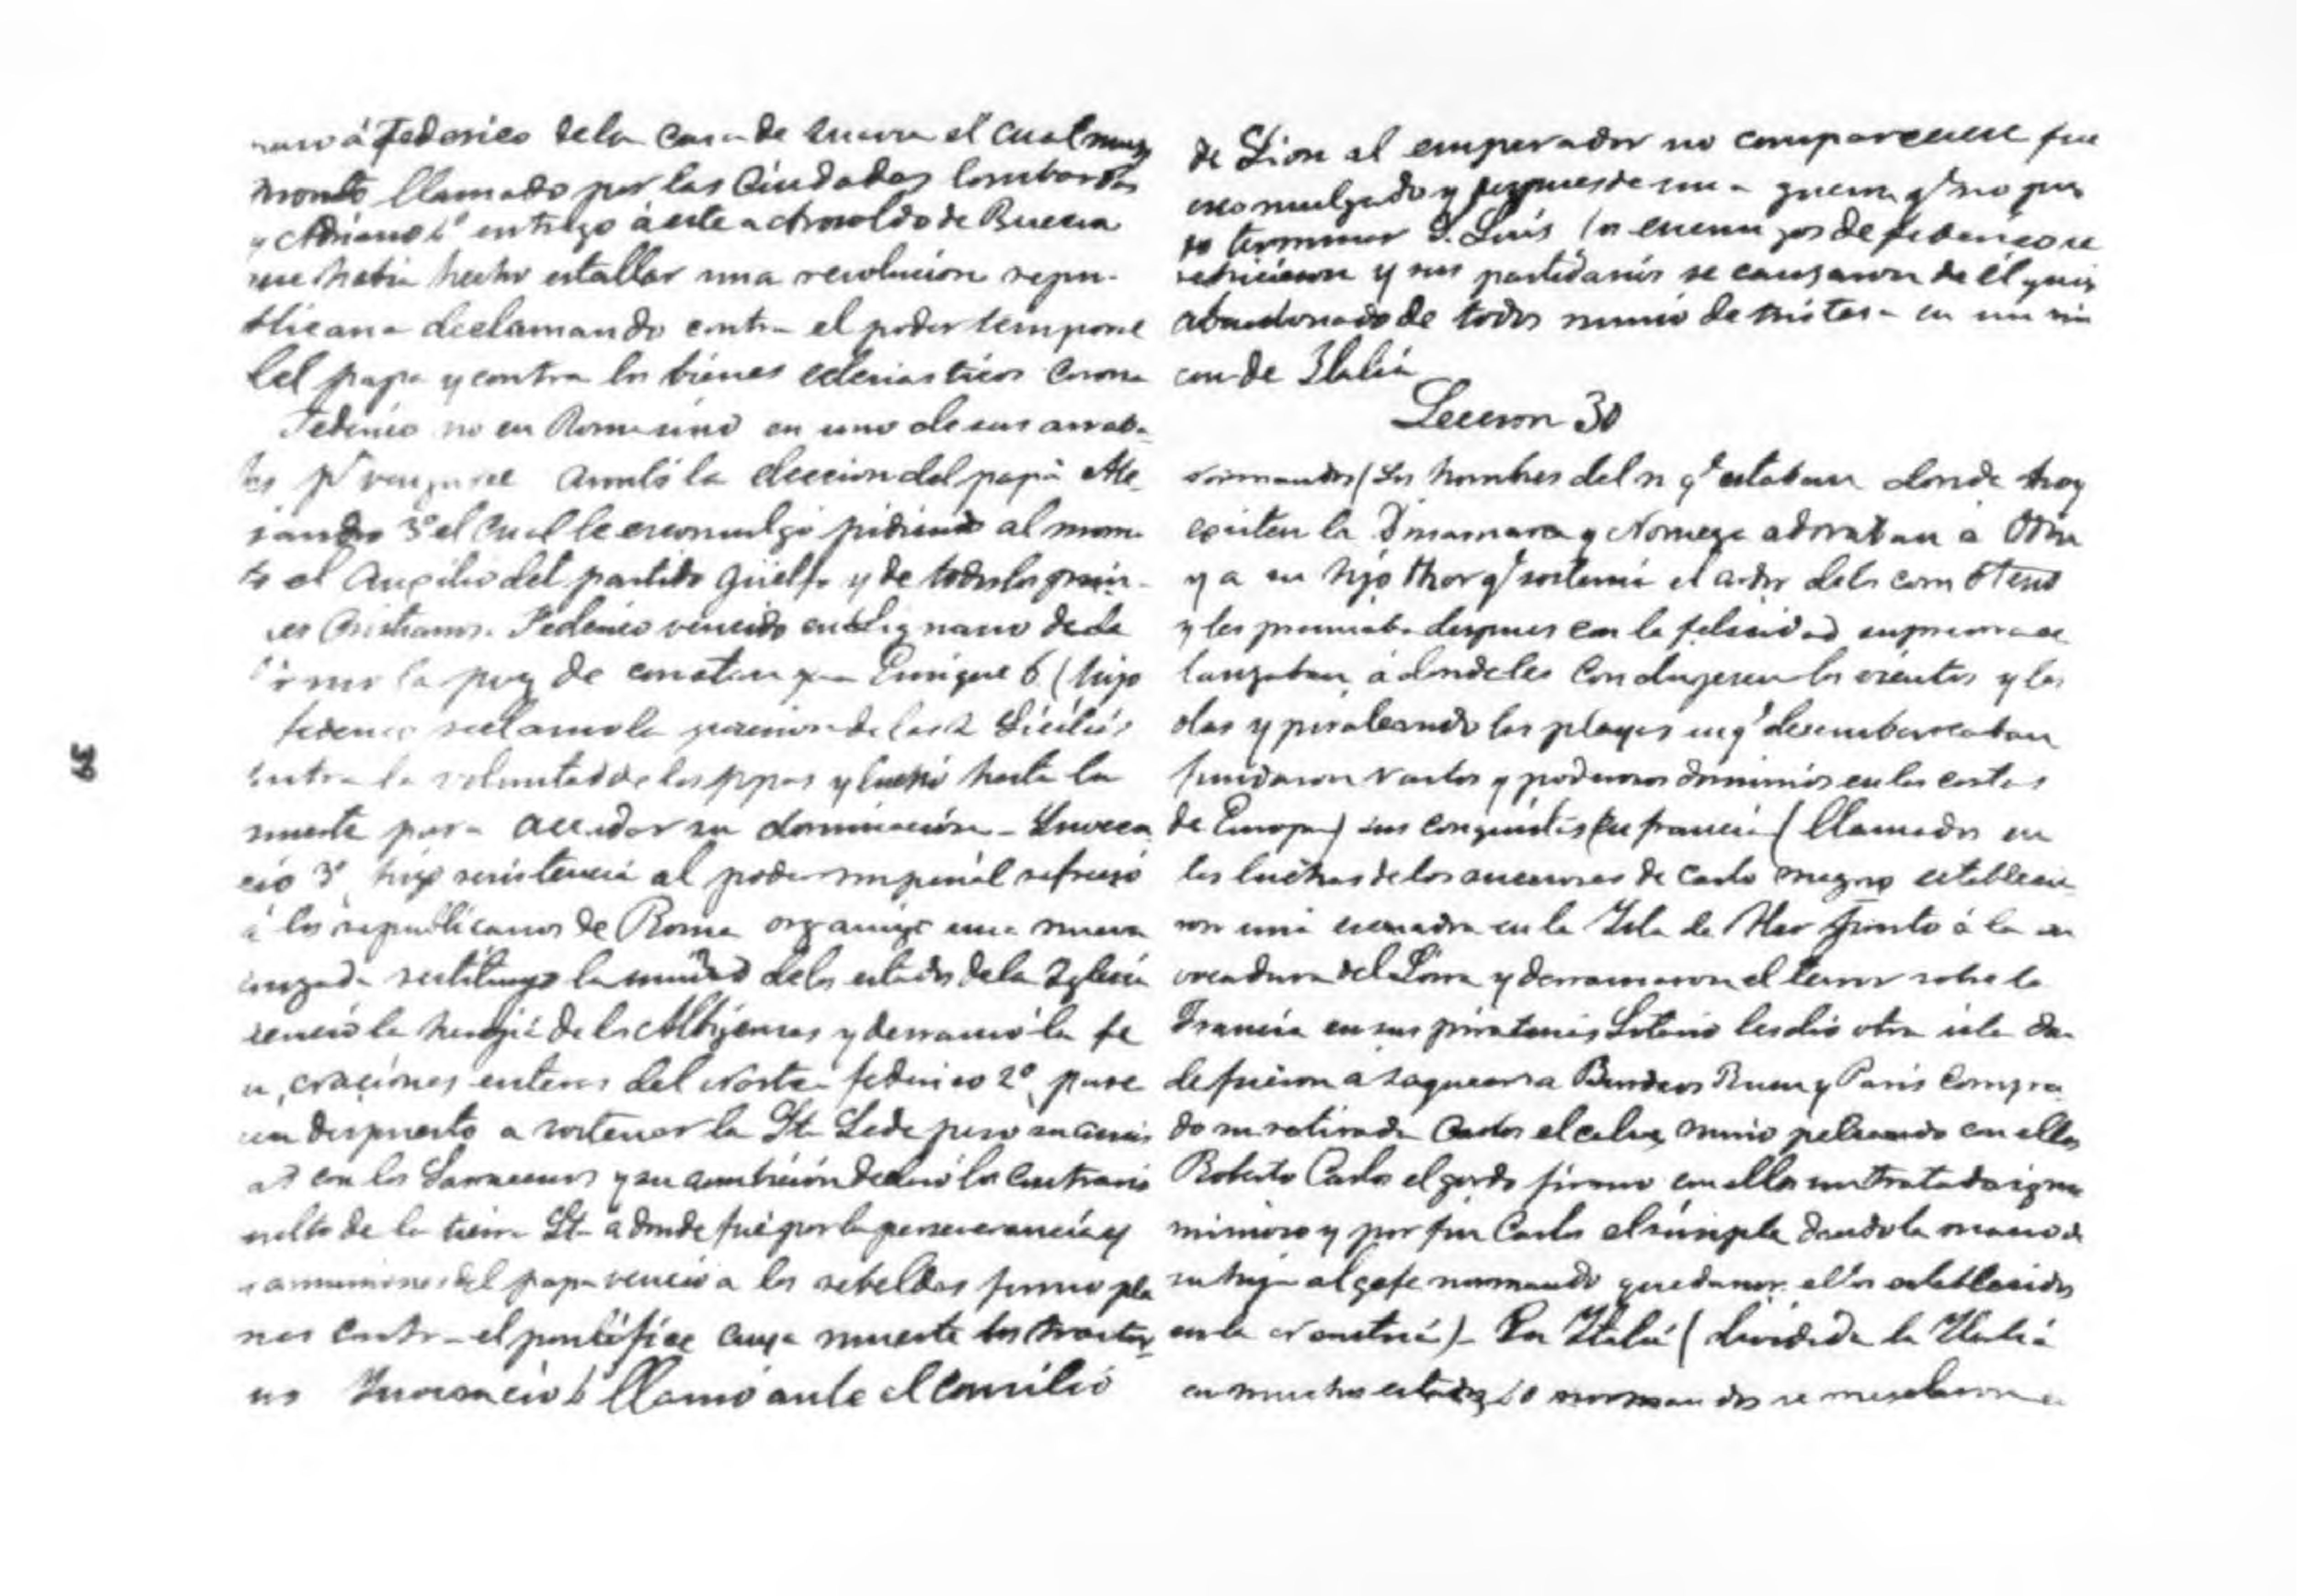 á Federico dela Casa de Suavia el cual muy
pronto llamado por las Ciudades lombardas
y Adriano 4º entrego á este a Arnoldo de Brescia
que habia hecho estallar una revolucion repu-
blicana declamando contra el poder temporal
del papa y contra los bienes eclesiasticos Corona
Federico no en Roma sino en uno de sus arraba-
les pr vengarse Anuló la eleccion del papa Ale-
jandro 3º el Cual le escomulgó pidiendo al mom
to el Auxilio del partido Güelfo y de todos los prin-
es Cristianos. Federico vencido en Lignano
firmo la paz de constanza Enrique 6 (hijo
federico reclamo la posesion de las 2 Sicilias
contra la voluntad de los ppas y luchó hasta la
muerte para su dominación - Inocen
cio 3º hizo resistencia al poder imperial
á los republicanos de Roma organizó una nueva
cruzada restituyó la unidad delos estados dela Iglesia
venció la heregia de los Albijenses y derramó la fe
a, naciones enteras del Norte - federico 2º pare
cia dispuesto a sostener la St. Sede pero su
ad con los Sarracenos y su ambición lo Contrario
vuelto de la tierra St. a donde fué por la perseverancia y
amoniciones del papa venció a los rebeldes formo pla
nes contra el pontífice cuya muerte
no Inocencio 4 llamó ante el Concilio
39
de Lion al emperador no compareciese fue
escomulgado y despues de una guerra qe no pu
do terminar S. Luis los enemigos de federico se
y sus partidarios se cansaron de él y asi
abandonado de todos murió de tristeza en un rin
con de Italia
Leccion 30
Normandos (Los hombres del n qe estaban donde hoy
existen la Dinamarca y Noruega adoraban a Odin
y a su hijo Thor qe sostenia el ardor dels
y les premiaba despues con la felicidad suprema se
lanzaban á donde les Condugesen los vientos y las
olas y pirateando las playas en qe desembarcaban
fundaron vastos y poderosos dominios en las costas
de Europa) sus conquistas En francia (llamados en
las luchas de los sucesores de Carlo magno establecie
ron una escuadra en la Isla de Her junto á la em
bocadura del Loira y derramaron el terror sobre la
Francia en sus piraterias Lotario les dio otra isla don
de fueron a saquear a Burdeos Ruan y Paris Compra
do su retirada Carlos el calvo, murio peleando con ellos
Roberto Carlos el gordo firmo con ellos un tratado igno
minioso y por fin Carlos el simple dando la mano de
su hija al gefe normando quedaron ellos establecidos
en la Neustria) - En Italia (dividida la Italia
en muchos estados 40 normandos se mesclaron